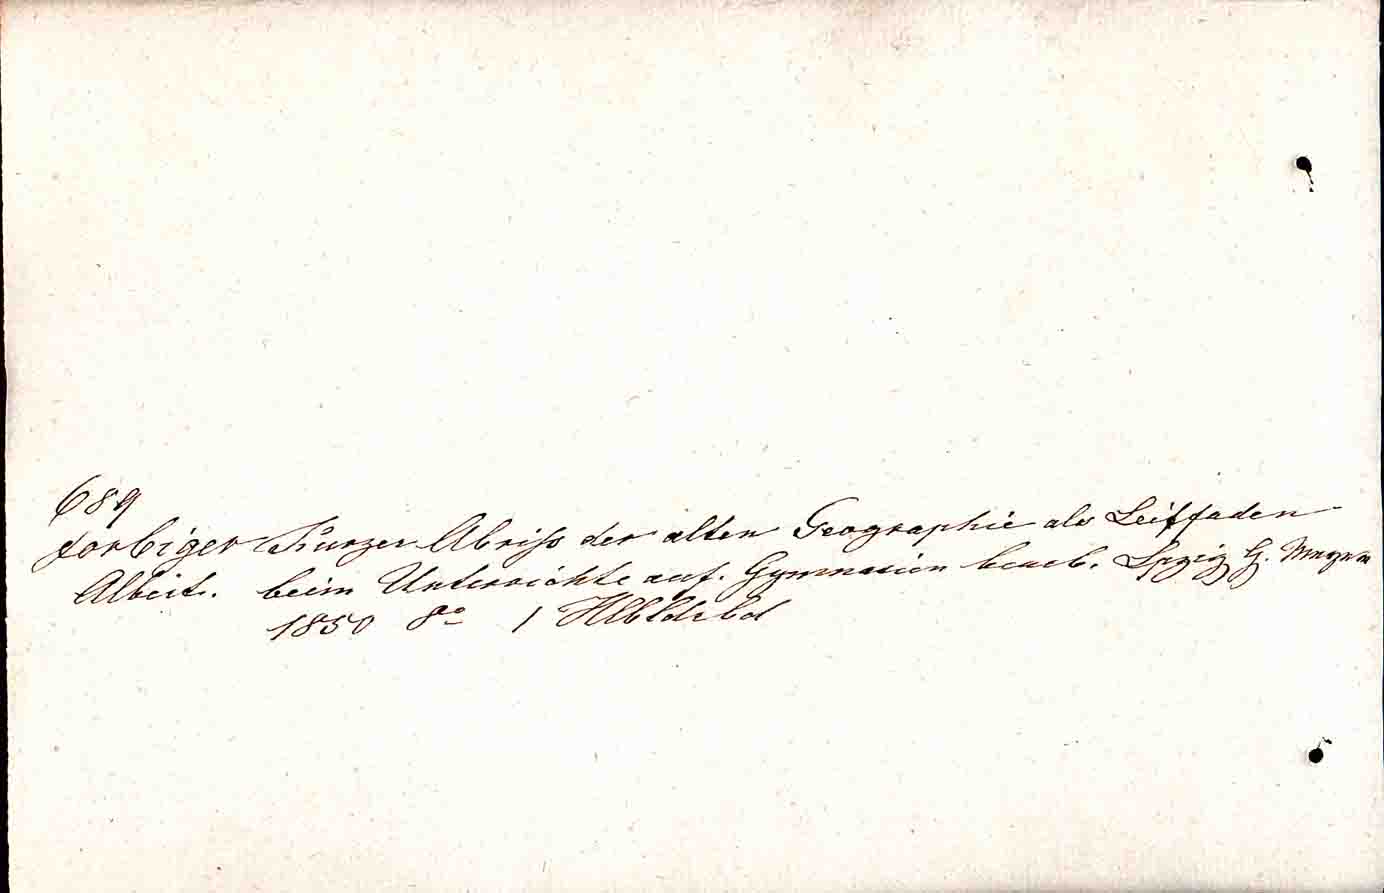 689
Forbiger Kurzer Abriss der alten Geographie als Leitfaden
Albert. beim Unterrichte auf. Gymnasien bearb. Lpzig G. Mayer
1850 8o 1 Hlbldrbd